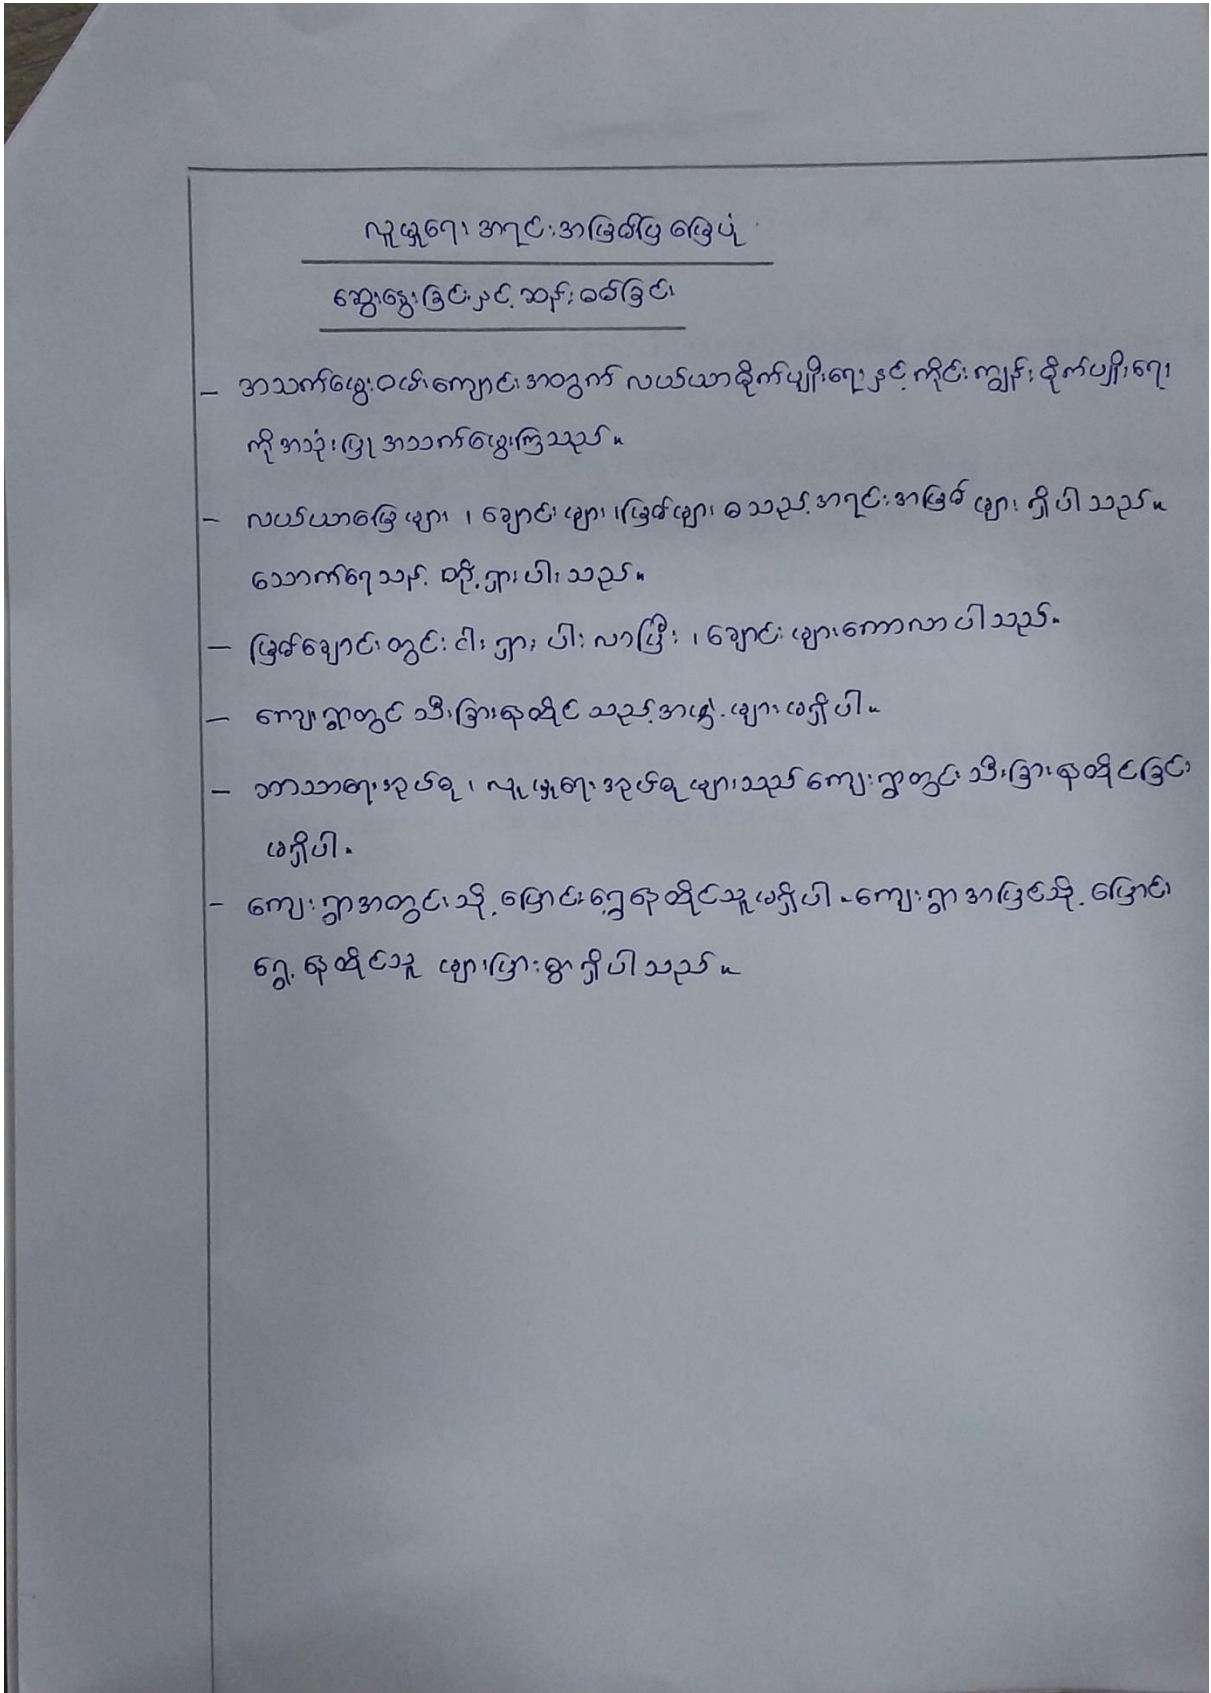 လူမှုရေး အရင်းအမြစ်ပြ မြေပုံ
ဆွေးနွေးခြင်းနှင့် ဆန်းစစ်ခြင်း
- အသက်မွေးဝမ်းကျောင်းအတွက် လယ်ယာစိုက်ပျိုးရေးနှင့် ကိုင်းကျွန်းစိုက်ပျိုးရေး
ကိုအသုံးပြု အသက်မွေးကြသည်။
- လယ်ယာမြေများ၊ ချောင်းများ၊ မြစ်များ စသည့်အရင်းအမြစ်များ ရှိပါသည်။
သောက်ရေသန့် တို့ ရှားပါးသည်။
- မြစ်ချောင်းတွင်း ငါး ရှား ပါး လာပြီး၊ ချောင်းများကောလာပါသည်။
- ကျေးရွာတွင် သီးခြားနေထိုင် သည့်အဖွဲ့များမရှိပါ။
- ဘာသာရေးအုပ်စု၊ လူမှုရေးအုပ်စုများသည် ကျေးရွာတွင်း သီးခြားနေထိုင်ခြင်း
မရှိပါ။
- ကျေးရွာအတွင်းသို့ ပြောင်းရွှေ့နေထိုင်သူမရှိပါ။ ကျေးရွာအပြင်သို့ ပြောင်း
ရွှေ့နေထိုင်သူ များပြားစွာ ရှိပါသည်။